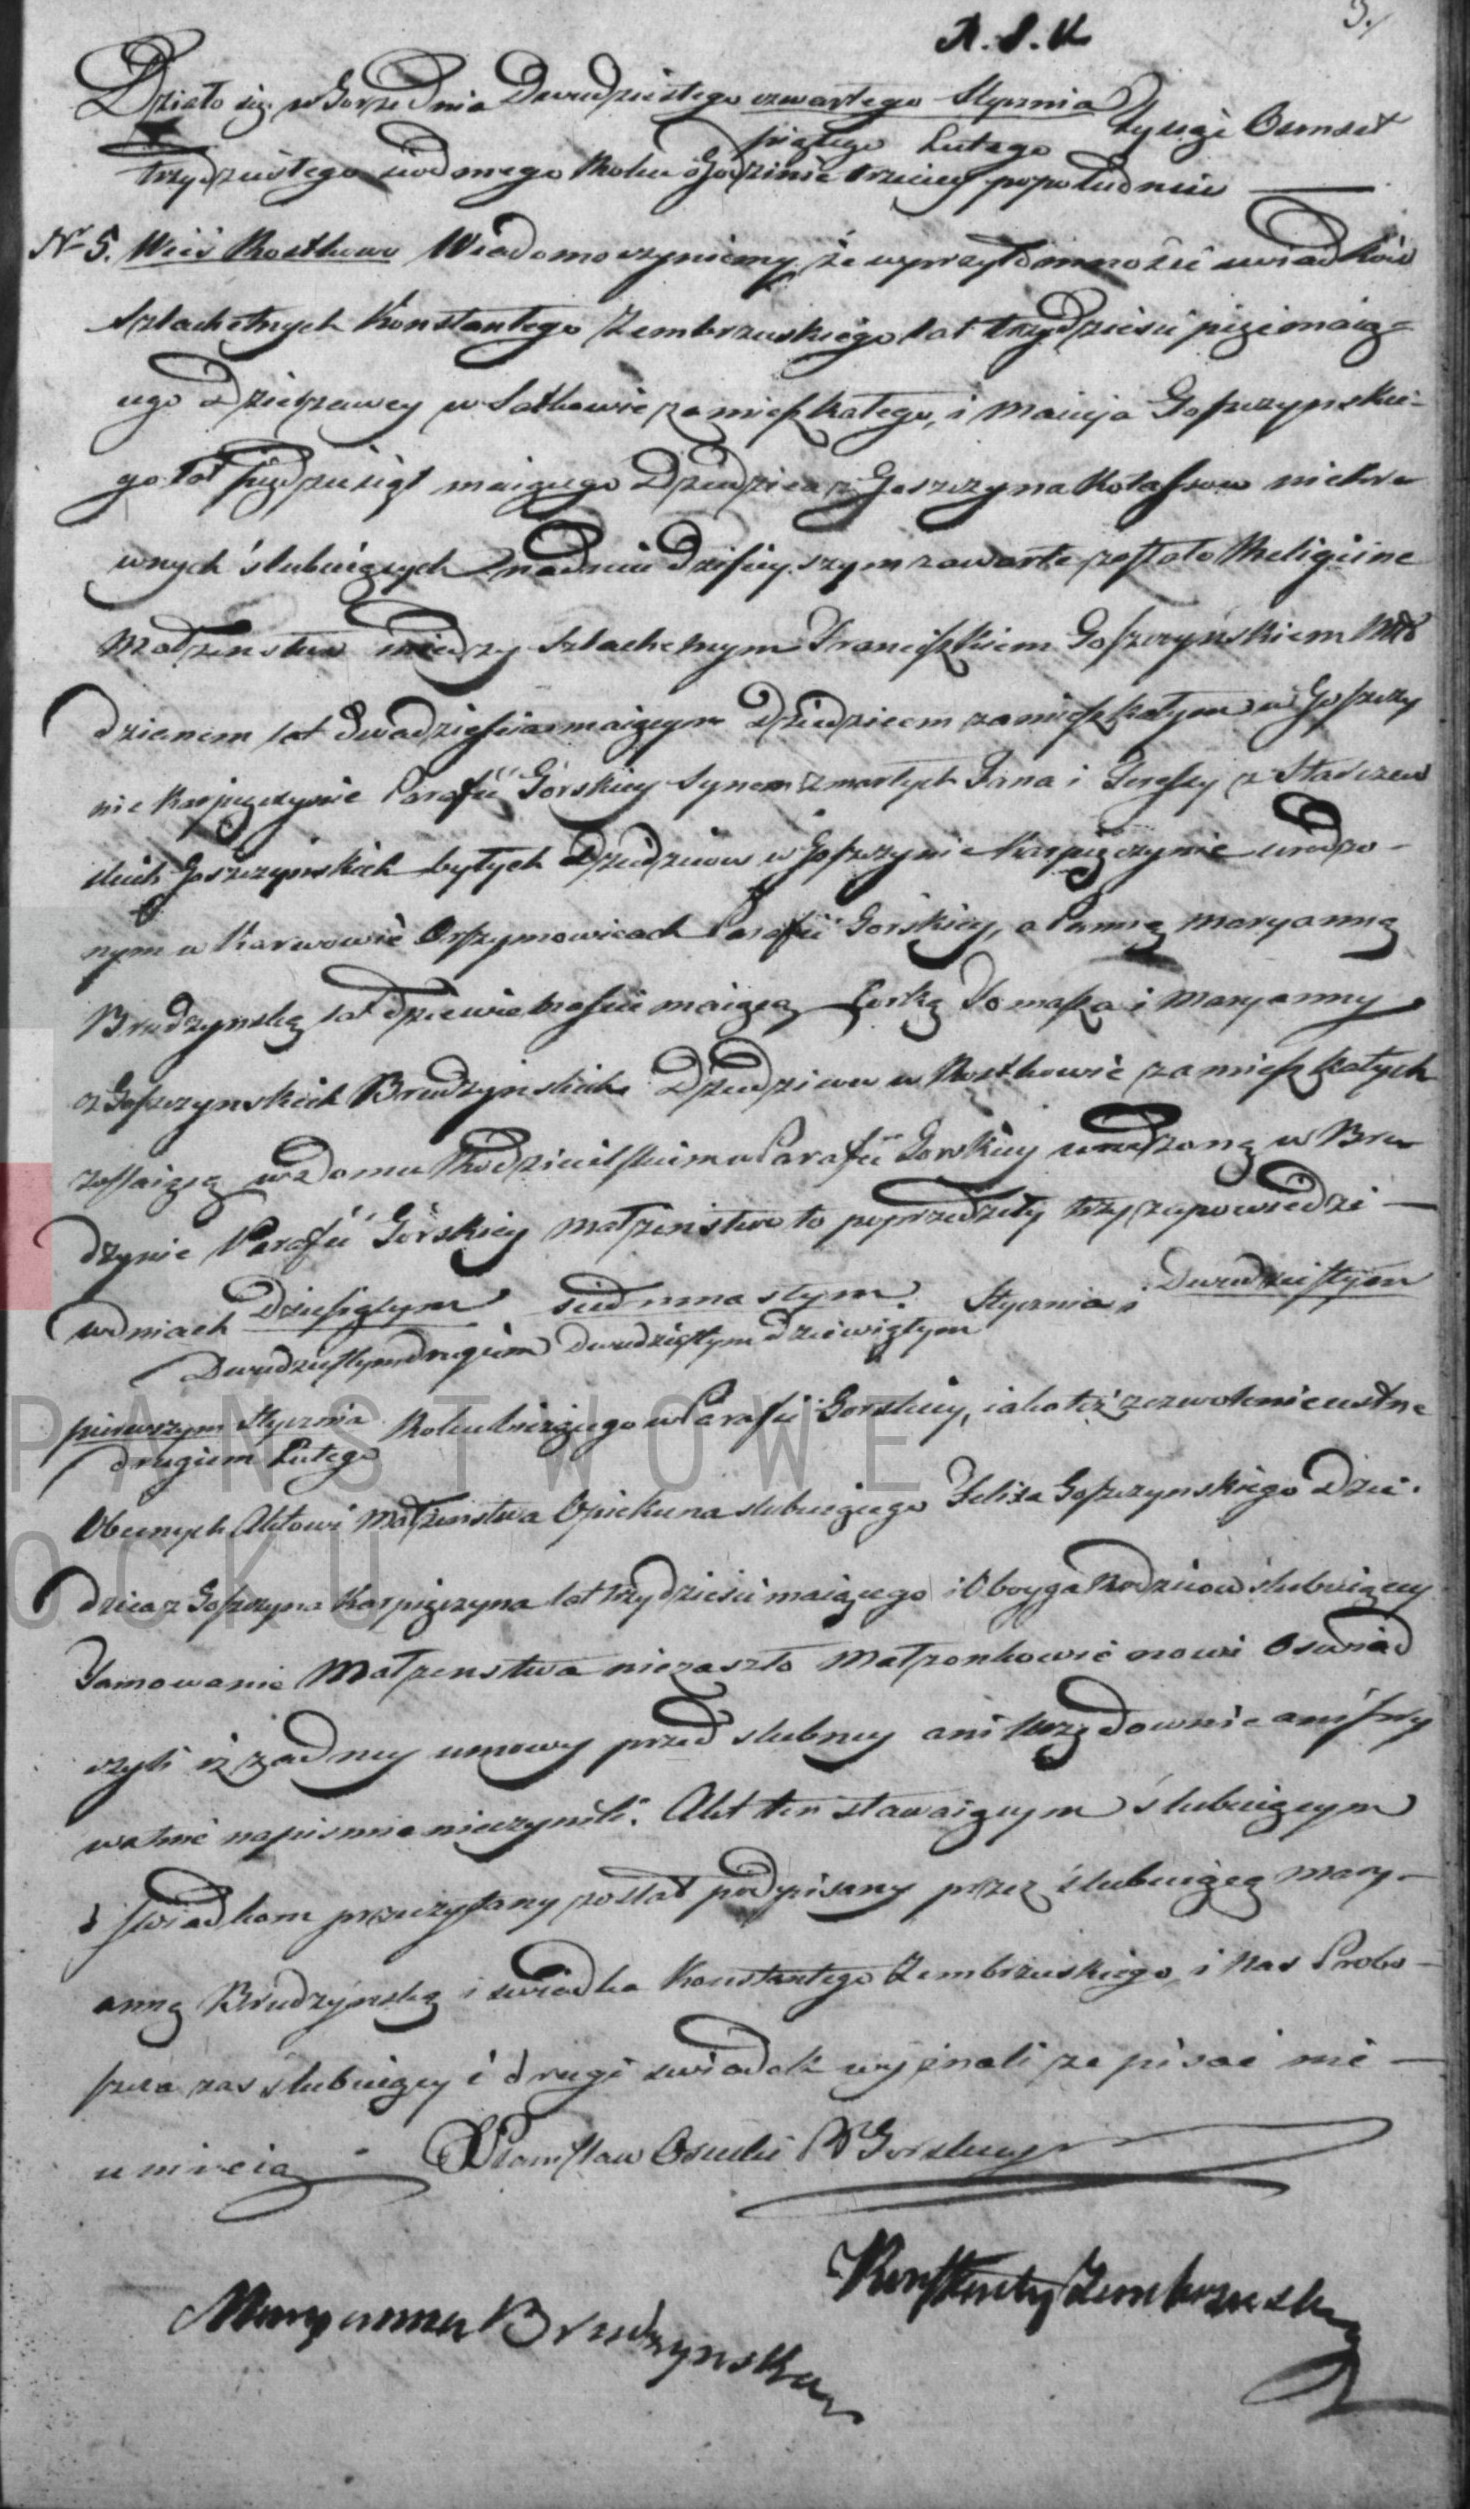 A. S. K
3.
Działo się w Gorze Dnia Dwudziestego czwartego Stycznia Tysiąc Osmset
piątego Lutego
trzydziestego siodmego Roku o Godzinie trzeciey popołudniu —
Nr 5. Wieś Rostkowo Wiadomo czyniemy, że w przytomności swiadków
Szlachetnych Konstantego Zembrzuskiego lat trzydzieści pięć maią=
cego Dzierzawcy w zamieszkałego, i Macieja Goszczynskie-
go lat piędziesiąt maiącego Dziedzica z Goszczyna niekre
wnych ślubuiących na dniu dzisieyszym zawarte zostało Religiine
Małżeństwo między Szlachetnym Franciszkiem Goszczyńskiem Mło
dzianem lat dwadzieścia maiącym Dziedzicem zamieszkałym w Goszczy
nie Karpięczynie Parafii Górskiey Synem zmarłych Jana i Teressy z
skich Goszczyńskich byłych Dziedziców w Goszczynie Karpięczynie urodzo-
nym w Karwowie Orszymowicach Parafii Gorskiey, a Panną Maryanną
Brudzynską lat dziewietnaście maiącą Corką Tomasza i Maryanny
z Goszczynskich Brudzynskich Dziedziców w Rostkowie zamieszkałych
zostaiącą w domu Rodzicielskim w Parafii Gorskiey urodzoną w Bru
dzynie Parafii Górskiey Małżeństwo to poprzedziły trzy zapowiedzi —
w dniach Dziesiątym siedmnastym Stycznia i Dwudziestym
Dwudziestym drugim Dwudziestym dziewiątym
pierwszym Stycznia Roku bieżącego w Parafii Gorskiey, iako też zezwolenie ustne
drugiem Lutego
Obecnych Aktowi Małżenstwa Opiekuna slubuiącego Felixa Goszczynskiego Dzie-
dzica z Goszczyna Karpięczyna lat trzydzieści maiącego i Oboyga Rodziców slubuiącey
Tamowanie Małżenstwa niezaszło Małżonkowie nowi Oswiad
czyli iż żadney umowy przed slubney ani Urzędownie ani pry
watnie na pismie nieczynili. Akt ten stawaiącym ślubuiącym
i swiadkom przeczytany został podpisany przez slubuiącą Mary-
anną Brudzyńską i swiadka Konstantego Zembrzuskiego i Nas Probo-
szcza zaś slubuiący i drugi swiadek wyznali że pisać nie —
umieią Stanisław Osiecki P. Gorskiey
Konstanty Zembrzuski
Maryanna Brudzynska
PAŃSTWOWE
OCKU